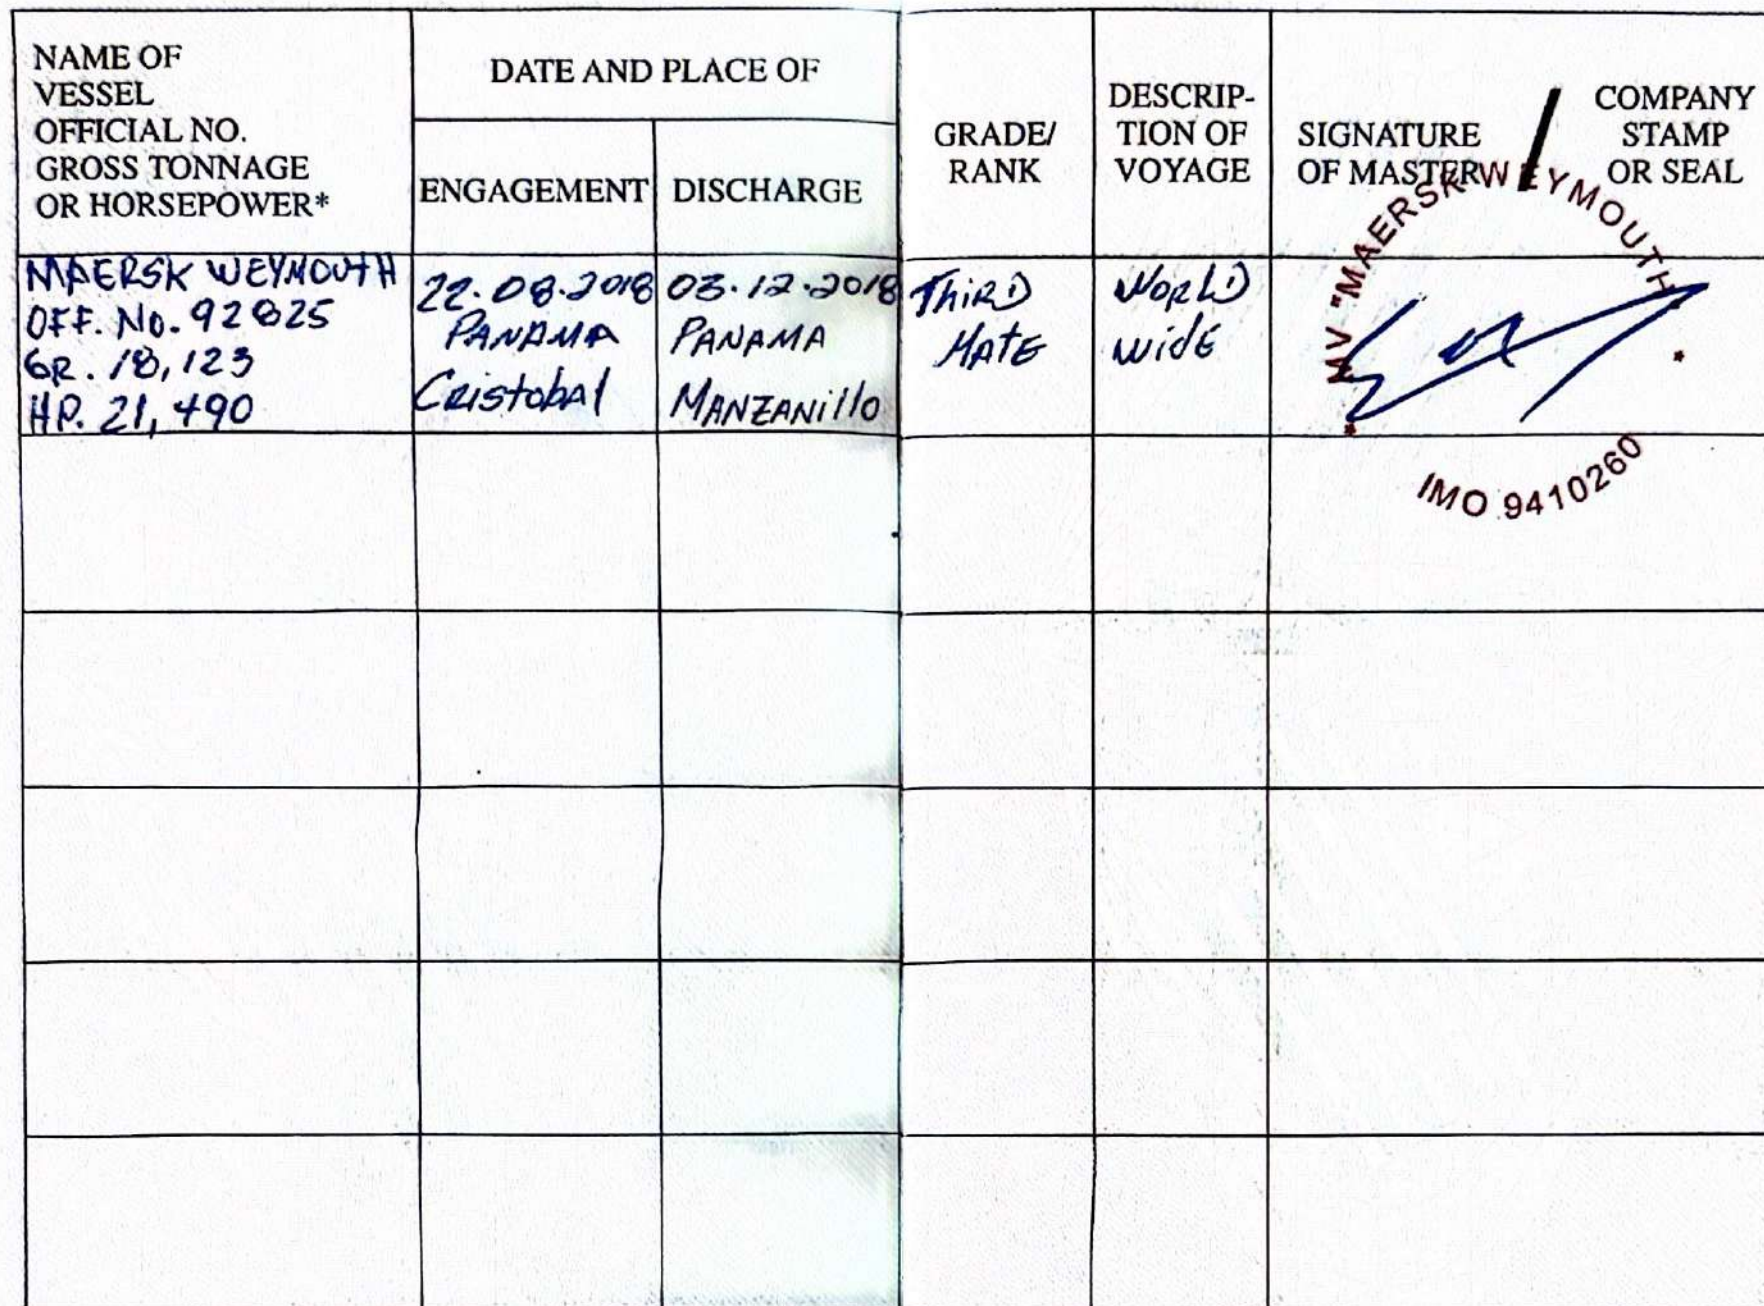 NAME OF
VESSEL
OFFICIAL NO.
GROSS TONNAGE
OR HORSEPOWER*
DATE AND PLACE OF
ENGAGEMENT
DISCHARGE
GRADE/
RANK
DESCRIP-
TION OF
VOYAGE
SIGNATURE
OF MASTER
/
COMPANY
STAMP
OR SEAL
MAERSK WEYMOUTH
OFF. No. 92825
GR. 18,123
HP. 21,490
22.08.2018
PANAMA
Cristobal
03.12.2018
PANAMA
MANZANillo
THiRD
MATE
WORLD
WidE
MV "MAERSK WEYMOUTH"
IMO 9410260